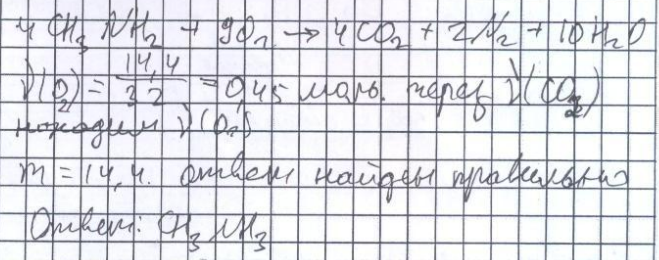 4 CH₃NH₂ + 9O₂ → 4CO₂ + 2N₂ + 10H₂O
ν(O₂) = 14,4/32 = 0,45 моль. через ν(CO₂)
находим ν(O₂)
m = 14,4. ответ найден правильно
Ответ: CH₃NH₃